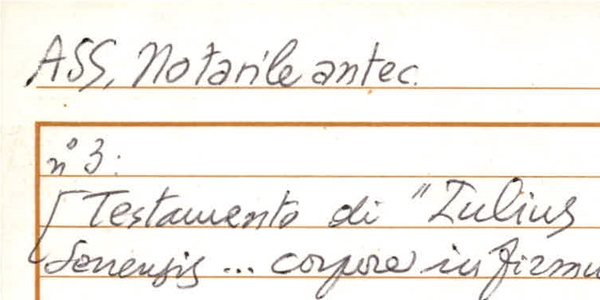 ASS, Notarile antec.
n° 3:
[Testamento di "Iulius
Senensis ... corpore infirmu